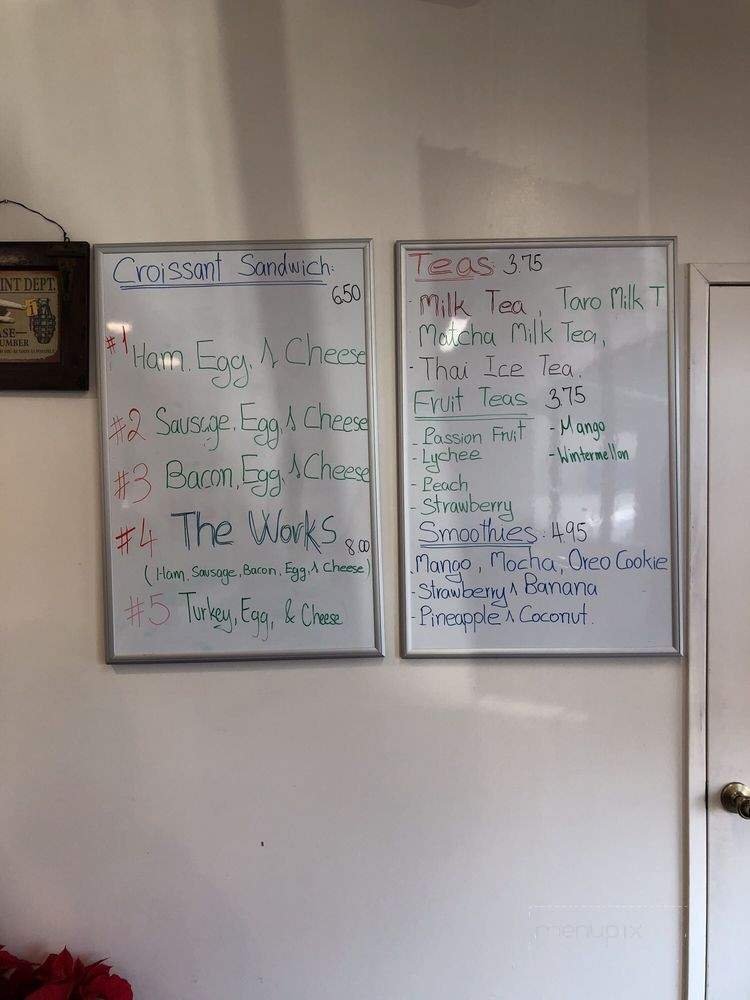 INT DEPT.
ASE—
UMBER
Croissant Sandwich:
6.50
#1 Ham, Egg, & Cheese
#2 Sausage, Egg, & Cheese
#3 Bacon, Egg, & Cheese
#4 The Works 8.00
(Ham, Sausage, Bacon, Egg, & Cheese)
#5 Turkey, Egg, & Cheese
Teas: 3.75
- Milk Tea, Taro Milk T
- Matcha Milk Tea,
- Thai Ice Tea.
Fruit Teas 3.75
- Passion Fruit - Mango
- Lychee - Wintermellon
- Peach
- Strawberry
Smoothies: 4.95
- Mango, Mocha, Oreo Cookie
- Strawberry & Banana
- Pineapple & Coconut.
menupix